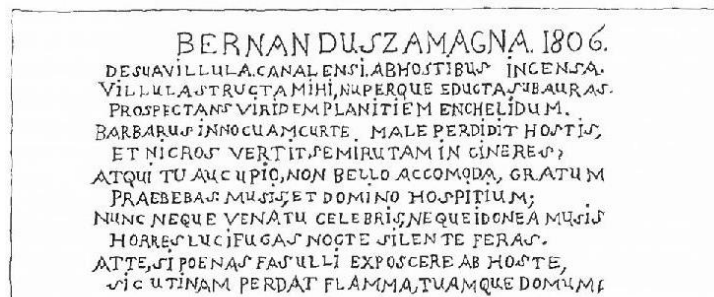 BERNANDUSZAMAGNA. 1806.
DESUAVILLULA.CANALENSI.ABHOSTIBUS INCENSA.
VILLULASTRUCTAMIHI,NUPERQUE EDUCTASUBAURAS.
PROSPECTANSVIRIDEMPLANITIEM ENCHELIDUM.
BARBARUSINNOCUAMCURTE. MALE PERDIDIT HOSTIS,
ET NICROS VERTIT,SEMIRUTAM IN CINERES;
ATQUI TU AUCUPIO,NON BELLO ACCOMODA, GRATUM
PRAEBEBAS: MUSIS,ET DOMINO HOSPITIUM;
NUNC NEQUE VENATU CELEBRIS,NEQUEIDONEA MUSIS
HORRESLUCIFUGAS NOCTE SILENTE FERAS.
ATTE,SIPOENAS FASULLI EXPOSCERE AB HOSTE,
SIC UTINAM PERDAT FLAMMA,TUAMQUE DOMUM!